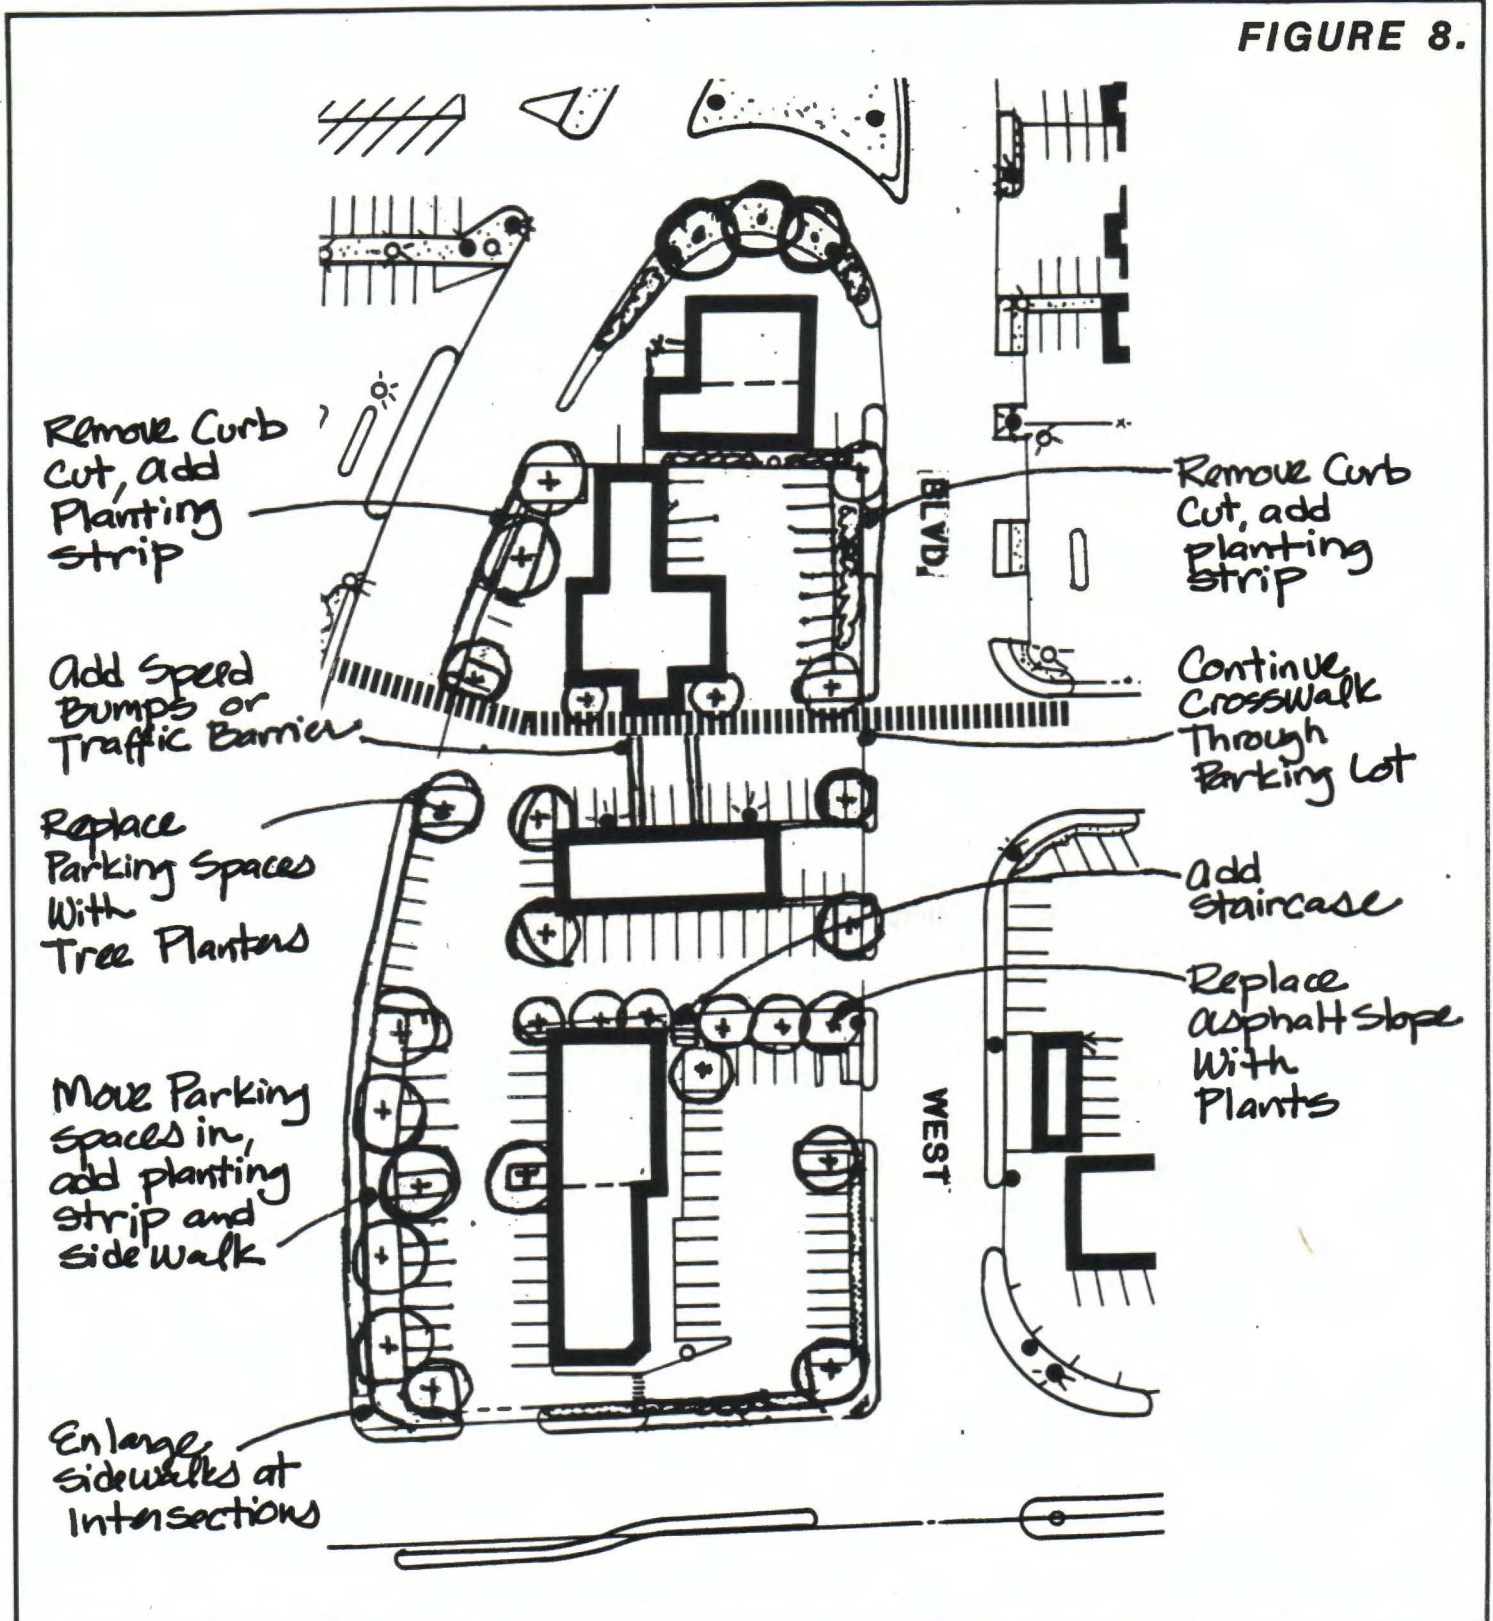 FIGURE 8.
Remove Curb
Cut, add
Planting
Strip
Add Speed
Bumps or
Traffic Barrier
Replace
Parking Spaces
With
Tree Planters
Move Parking
Spaces in,
add planting
strip and
sidewalk
Enlarge
sidewalks at
Intersections
BLVD.
WEST
Remove Curb
Cut, add
planting
strip
Continue
Crosswalk
Through
Parking Lot
Add
Staircase
Replace
Asphalt Slope
With
Plants